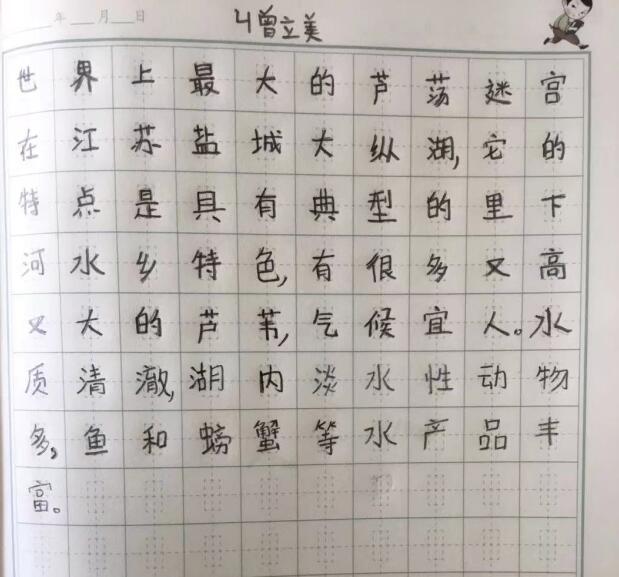 年 月 日
4曾立美
世界上最大的芦荡迷宫
在江苏盐城大纵湖,它的
特点是具有典型的里下
河水乡特色,有很多又高
又大的芦苇,气候宜人。水
质清澈,湖内淡水性动物
多,鱼和螃蟹等水产品丰
富。